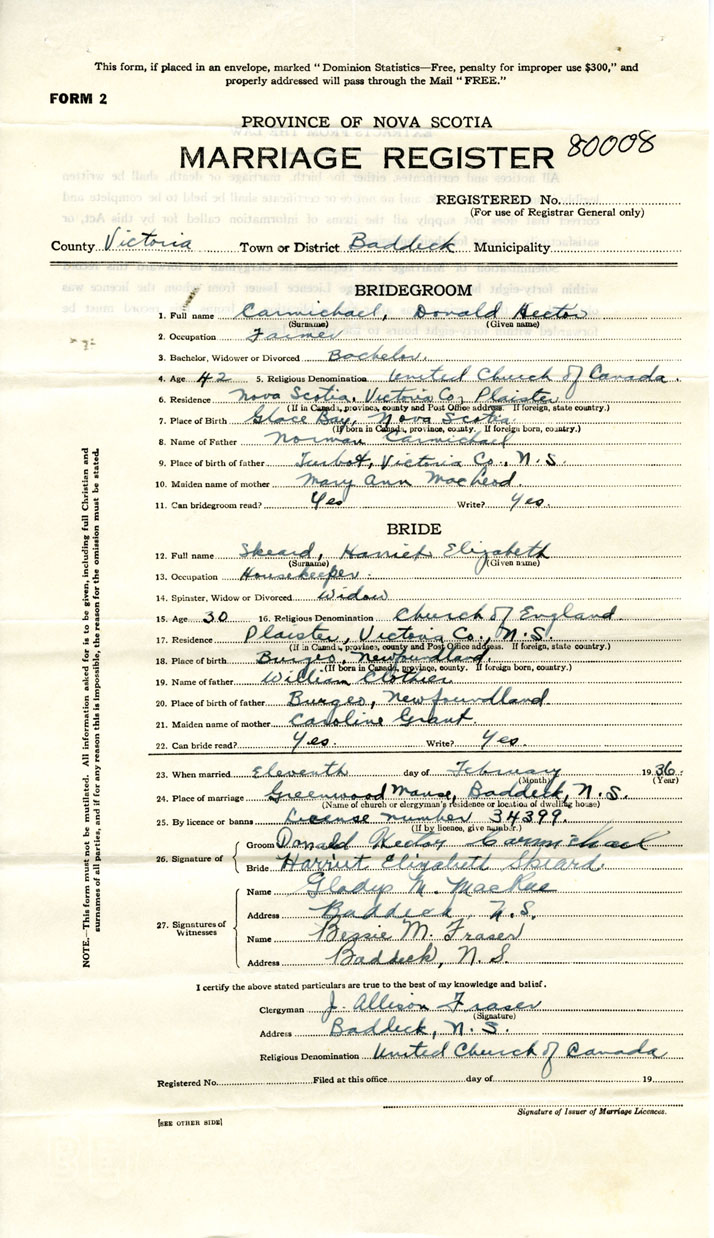 This form, if placed in an envelope, marked " Dominion Statistics—Free, penalty for improper use $300," and
properly addressed will pass through the Mail " FREE."
FORM 2
PROVINCE OF NOVA SCOTIA
MARRIAGE REGISTER 80008
REGISTERED No.
(For use of Registrar General only)
County Victoria Town or District Baddeck Municipality
BRIDEGROOM
1. Full name Carmichael, Donald Hector
(Surname) (Given name)
2. Occupation Farmer
3. Bachelor, Widower or Divorced Bachelor.
4. Age 42 5. Religious Denomination United Church of Canada.
6. Residence Nova Scotia, Victoria Co, Plaister
(If in Canada, province, county and Post Office address. If foreign, state country.)
7. Place of Birth Glace Bay, Nova Scotia
(If born in Canada, province, county. If foreign born, country.)
8. Name of Father Norman Carmichael
9. Place of birth of father Tarbot, Victoria Co., N.S.
10. Maiden name of mother Mary Ann MacLeod
11. Can bridegroom read? Yes Write? Yes.
BRIDE
12. Full name Skeard, Harriet Elizabeth
(Surname) (Given name)
13. Occupation Housekeeper.
14. Spinster, Widow or Divorced Widow
15. Age 30 16. Religious Denomination Church of England
17. Residence Plaister, Victoria Co., N.S.
(If in Canada, province, county and Post Office address. If foreign, state country.)
18. Place of birth Burgeo, Newfoundland.
(If born in Canada, province, county. If foreign born, country.)
19. Name of father William Clothier
20. Place of birth of father Burgeo, Newfoundland
21. Maiden name of mother Caroline Grant.
22. Can bride read? Yes. Write? Yes.
23. When married Eleventh day of February 1936.
(Month) (Year)
24. Place of marriage Greenwood Manse, Baddeck, N.S.
(Name of church or clergyman's residence or location of dwelling house)
25. By licence or banns License number 34399.
(If by licence, give number.)
26. Signature of
Groom Donald Hector Carmichael
Bride Harriet Elizabeth Skeard.
27. Signatures of Witnesses
Name Gladys M. MacRae
Address Baddeck, N.S.
Name Bessie M. Fraser
Address Baddeck, N.S.
I certify the above stated particulars are true to the best of my knowledge and belief.
Clergyman J. Allison Fraser
(Signature)
Address Baddeck, N.S.
Religious Denomination United Church of Canada
Registered No. Filed at this office day of 19
Signature of Issuer of Marriage Licences.
[SEE OTHER SIDE]
NOTE.—This form must not be mutilated. All information asked for is to be given, including full Christian and
surnames of all parties, and if for any reason this is impossible, the reason for the omission must be stated.